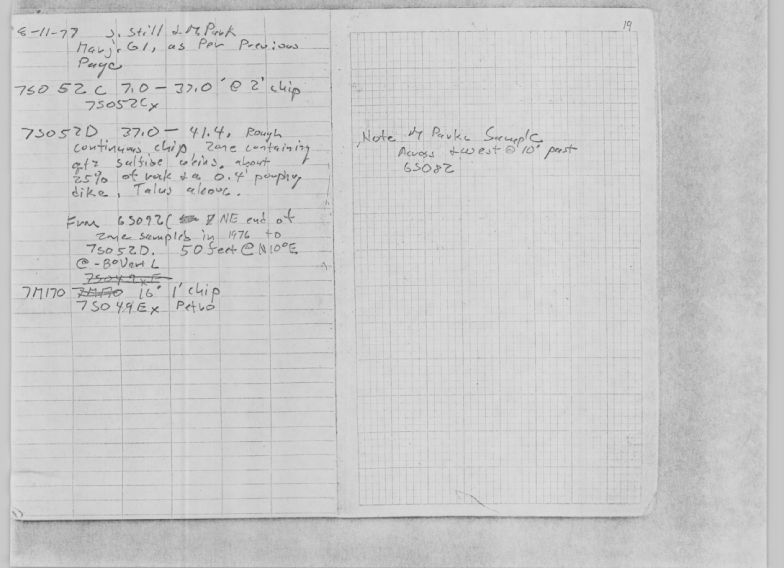 8-11-77 J. Still & M. Park
Marj. Gl, as Per Previous
Page
7S052C 7.0 - 37.0' @ 2' chip
7S052Cx
7S052D 37.0 - 41.4, Rough
continuous chip, Zone containing
qtz sulfide veins, about
25% of rock & a 0.4' porphy
dike, Talus above.
From 6S092C NE end of
zone samples in 1976 to
7S052D. 50 feet @ N10°E
@ -8° Vert L
7M170 16° 1' chip
7S049Ex Petro
19
Note M Parks Sample
Across & west @ 10° past
6S082